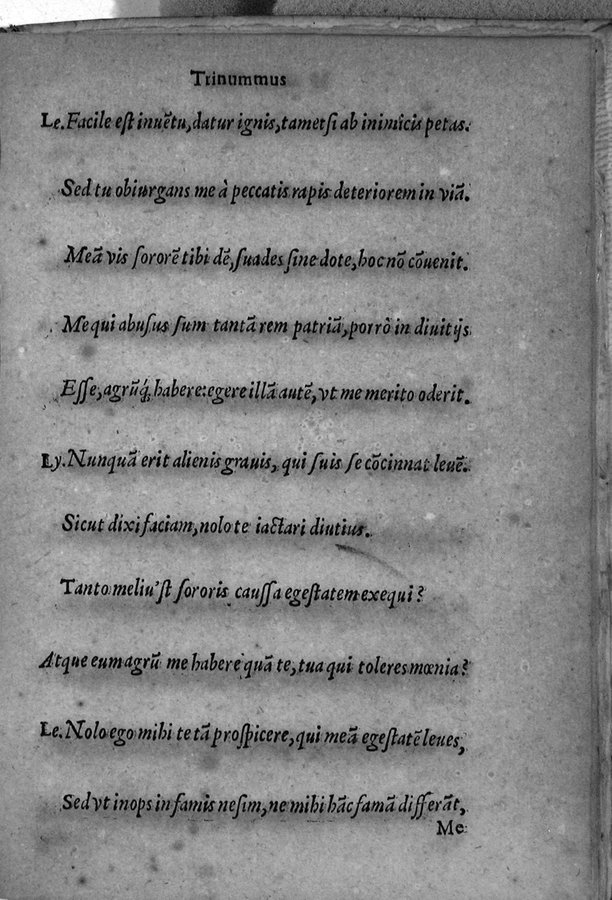 Trinummus
Le. Facile eſt inuẽtu, datur ignis, tametſi ab inimicis petas.
Sed tu obiurgans me à peccatis rapis deteriorem in viã.
Meã vis ſororẽ tibi dẽ, ſuades ſine dote, hoc nõ cõuenit.
Me qui abuſus ſum tantã rem patriã, porrò in diuitijs
Eſſe, agrũq́; habere: egere illã autẽ, vt me merito oderit.
Ly. Nunquã erit alienis grauis, qui ſuis ſe cõcinnat leuẽ.
Sicut dixi faciam, nolo te iactari diutius.
Tanto meliu'ſt ſororis cauſſa egeſtatem exequi?
Atque eum agrũ me habere quã te, tua qui toleres mœnia?
Le. Nolo ego mihi te tã proſpicere, qui meã egeſtatẽ leues,
Sed vt inops infamis ne ſim, ne mihi hãc famã differãt,
Me